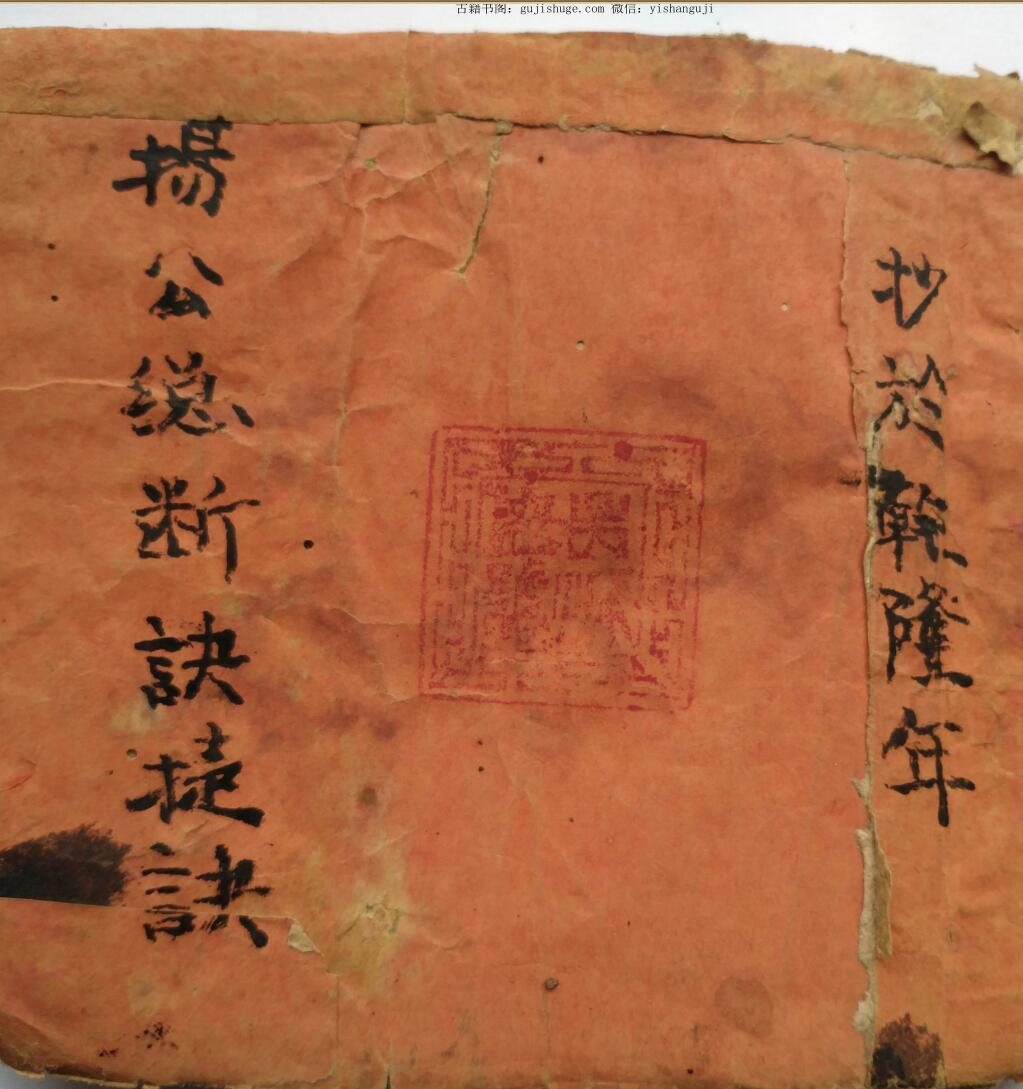 古籍书阁：gujishuge.com 微信：yishanguji
抄於乾隆年
揚公總断訣捷訣